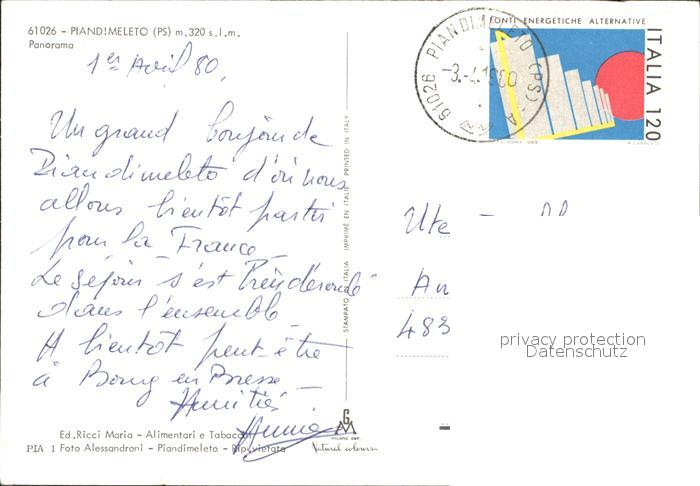 61026 - PIANDIMELETO (PS) m. 320 s.l.m.
Panorama
1er Avril 80,
Un grand bonjour de
Piandimeleto d'où nous
allons bientôt partir
pour la France -
Le séjour s'est bien déroulé
dans l'ensemble -
A bientôt peut-être
à Bourg en Bresse -
Amitiés.
Ed. Ricci Maria - Alimentari e Tabacchi
PIA 1 Foto Alessandroni - Piandimeleto - Rip. vietata
STAMPATO IN ITALIA IMPRIMÉ EN ITALIE PRINTED IN ITALY
GM
milano
Natural colours
61026 PIANDIMELETO (PS)
-3.-4.1980
FONTI ENERGETICHE ALTERNATIVE
ITALIA 120
Ute -
An
483
privacy protection
Datenschutz